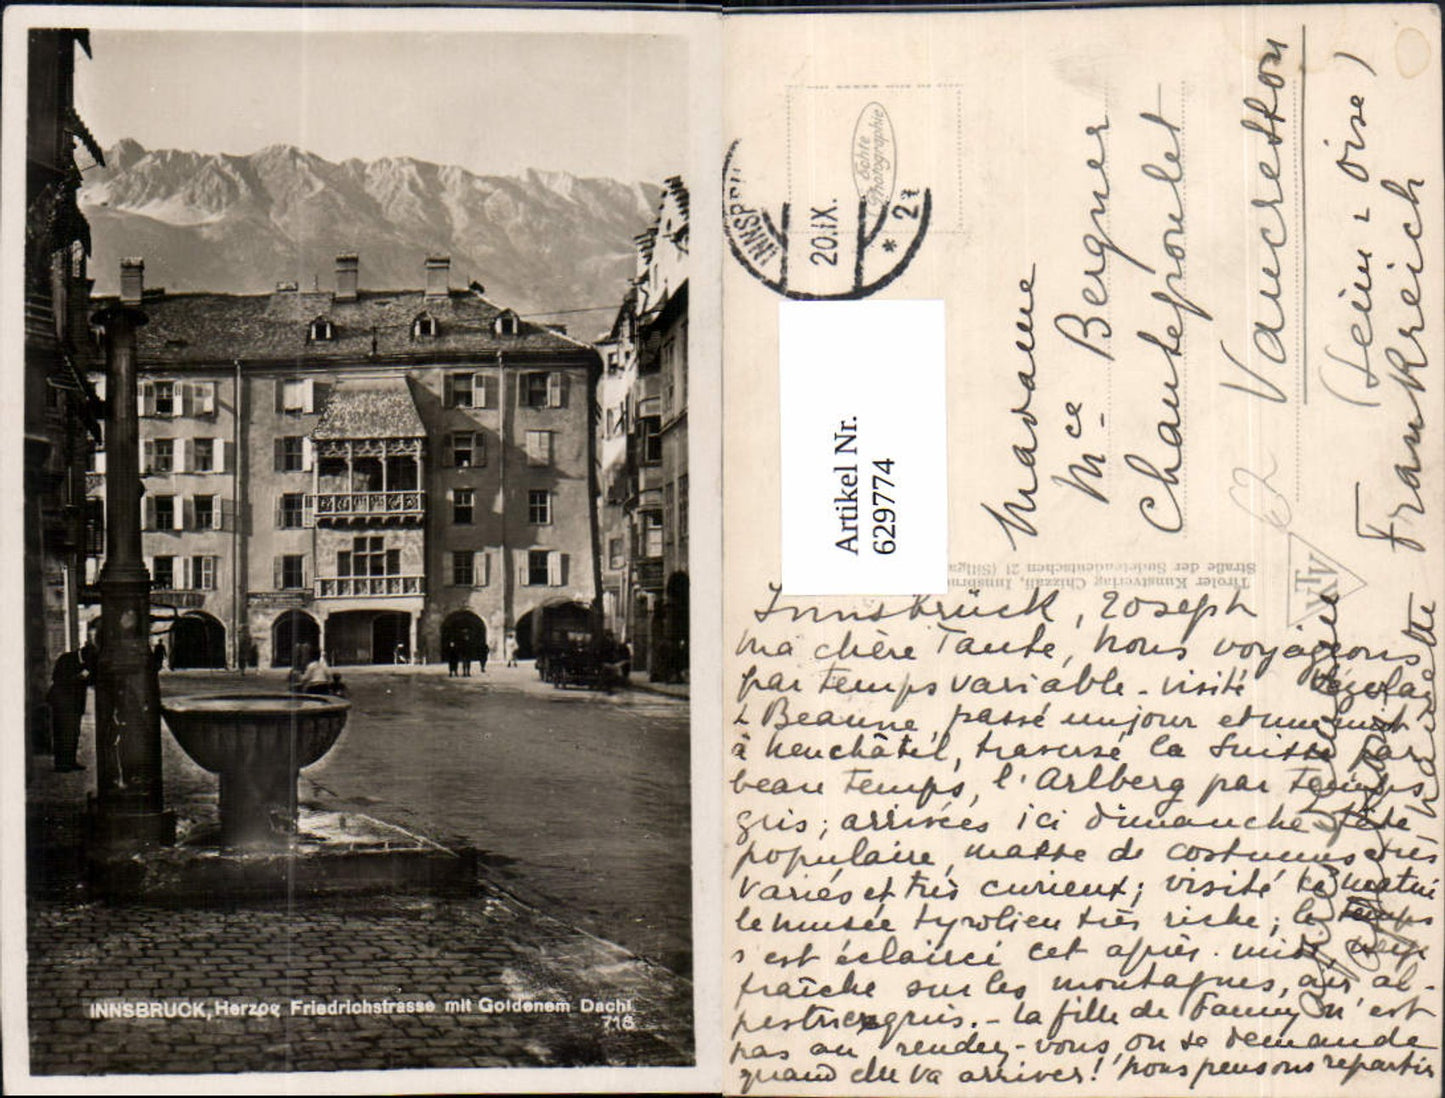 INNSBRUCK, Herzog Friedrichstrasse mit Goldenem Dachl
716
Echte
Photographie
INNSBR
20.IX.
* 2
Artikel Nr.
629774
Madame
Mce Bergner
Chantepoulet
Vaucresson
(Seine - Oise)
Frankreich
Tiroler Kunstverlag Chizzali, Innsbru
Straße der Sudetendeutschen 21 (Sillga
Innsbrück, 20 sept
Ma chère Tante, nous voyageons
par temps variable - visité
Beaune, passé un jour et une nuit
à Neuchâtel, traversé la Suisse par
beau temps, l'Arlberg par temps
gris; arrivées ici dimanche fête
populaire, masse de costumes très
variés et très curieux; visité ce matin
le musée tyrolien très riche; le temps
s'est éclairci cet après-midi, neige
fraîche sur les montagnes, air al-
pestre exquis. - La fille de Fanny n'est
pas au rendez-vous, on se demande
quand elle va arriver! Nous pensons repartir